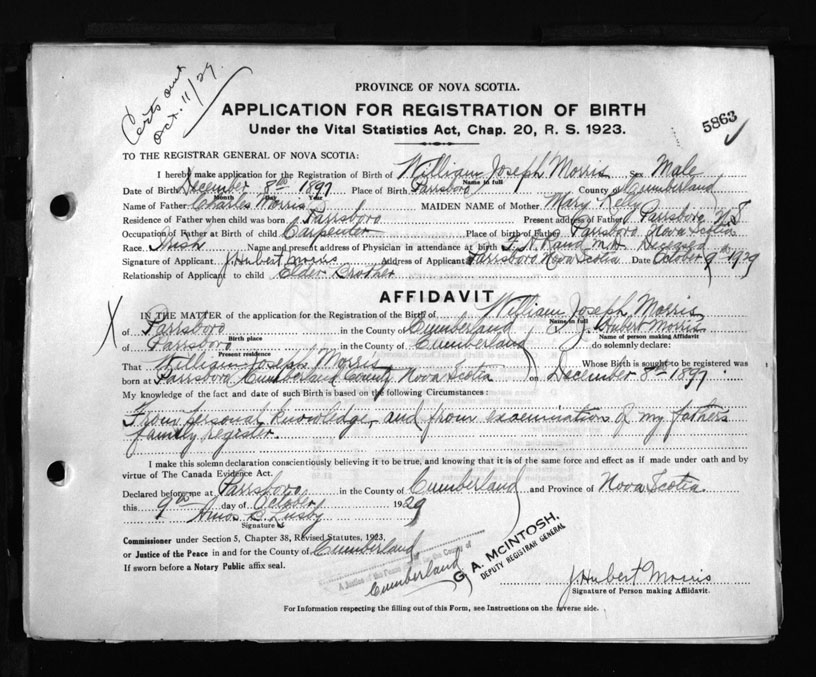 Certs out
Oct. 11/29.
PROVINCE OF NOVA SCOTIA.
APPLICATION FOR REGISTRATION OF BIRTH
Under the Vital Statistics Act, Chap. 20, R. S. 1923.
5863
TO THE REGISTRAR GENERAL OF NOVA SCOTIA:
I hereby make application for the Registration of Birth of William Joseph Morris Sex Male
Name in full
Date of Birth December 8th 1897 Place of Birth Parrsboro County of Cumberland
Month Day Year
Name of Father Charles Morris MAIDEN NAME of Mother Mary Kelly
Residence of Father when child was born Parrsboro Present address of Father Parrsboro N S
Occupation of Father at Birth of child Carpenter Place of birth of Father Parrsboro Nova Scotia
Race Irish Name and present address of Physician in attendance at birth F. N. Rand M.D. Deceased
Signature of Applicant J Hubert Morris Address of Applicant Parrsboro Nova Scotia Date October 9th 1929
Relationship of Applicant to child Elder Brother
AFFIDAVIT
X
IN THE MATTER of the application of the Registration of the Birth of William Joseph Morris
Name in full
of Parrsboro in the County of Cumberland I, J. Hubert Morris
Birth place Name of person making Affidavit
of Parrsboro in the County of Cumberland do solemnly declare:
Present residence
That William Joseph Morris Whose Birth is sought to be registered was
born at Parrsboro Cumberland County Nova Scotia on December 8th 1897.
My knowledge of the fact and date of such Birth is based on the following Circumstances:
From personal knowledge and from examination of my fathers
family register.
I make this solemn declaration conscientiously believing it to be true, and knowing that it is of the same force and effect as if made under oath and by
virtue of The Canada Evidence Act.
Declared before me at Parrsboro in the County of Cumberland and Province of Nova Scotia.
this 9th day of October 1929
Amos B. Lusby
Signature
Commissioner under Section 5, Chapter 38, Revised Statutes, 1923,
or Justice of the Peace in and for the County of Cumberland,
If sworn before a Notary Public affix seal.
A Justice of the Peace in and for the County of
Cumberland
G. A. McINTOSH,
DEPUTY REGISTRAR GENERAL
J Hubert Morris
Signature of Person making Affidavit.
For Information respecting the filling out of this Form, see Instructions on the reverse side.